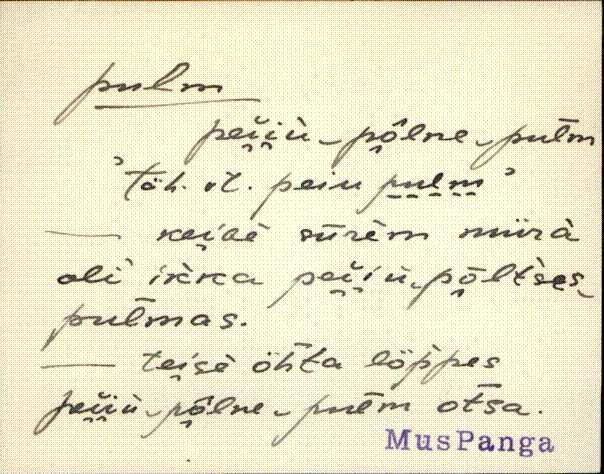 pulm
pei̯i̯ù-pô̭lne-pul̄m
'täh. vt. peiu pulm'
— kei̯ǵè sūrèm mürà
oli ìkka pei̯i̯ù-pò̭ltses
pul̄mas.
— tei̯sè öh̀ta löp̀pes
pei̯i̯ù-pô̭lne-pul̄m ot̄sa.
MusPanga